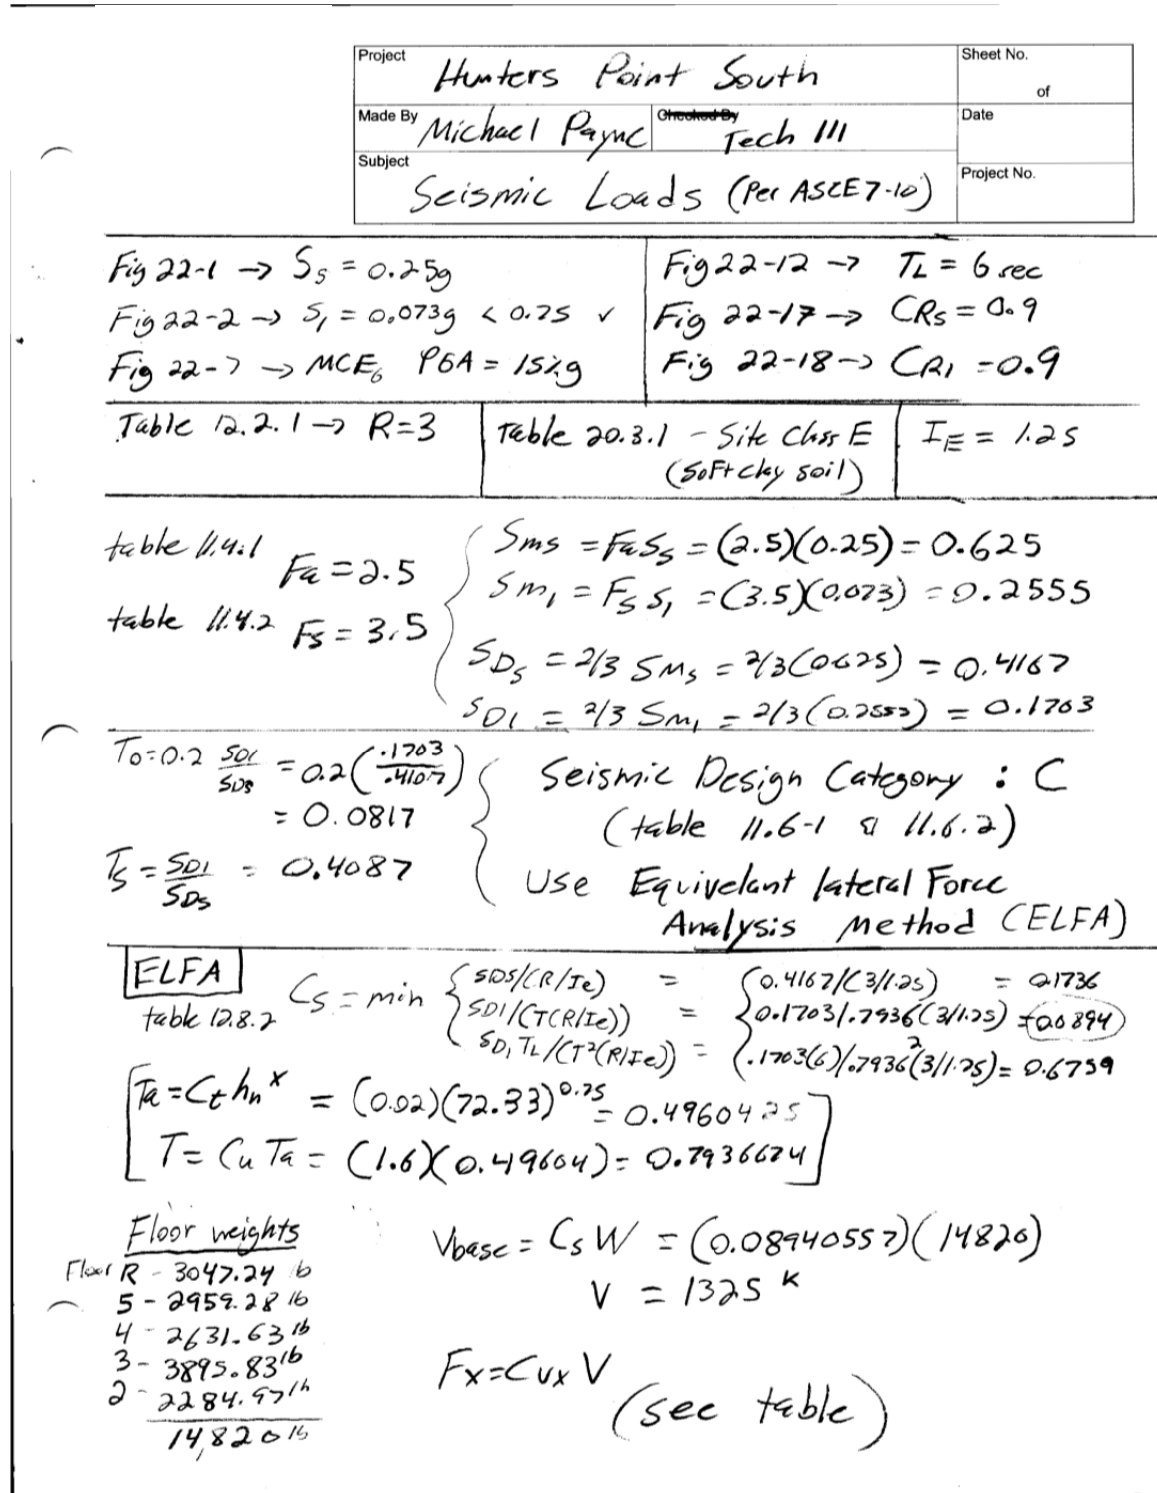 Project Hunters Point South Sheet No. of
Made By Michael Payne Checked By Tech III Date
Subject Seismic Loads (Per ASCE7-10) Project No.
Fig 22-1 → Ss = 0.25g
Fig 22-2 → S1 = 0.073g < 0.75 ✓
Fig 22-7 → MCEG PGA = 15%g
Fig 22-12 → TL = 6 sec
Fig 22-17 → CRs = 0.9
Fig 22-18 → CR1 = 0.9
Table 12.2.1 → R=3
Table 20.3.1 - Site Class E
(Soft clay soil)
IE = 1.25
table 11.4.1 Fa = 2.5
table 11.4.2 Fs = 3.5
Sms = FaSs = (2.5)(0.25) = 0.625
Sm1 = FsS1 = (3.5)(0.073) = 0.2555
SDs = 2/3 SMs = 2/3(0.625) = 0.4167
SD1 = 2/3 Sm1 = 2/3(0.2555) = 0.1703
T0 = 0.2 SD1/SDs = 0.2(.1703/.4167)
= 0.0817
Ts = SD1/SDs = 0.4087
Seismic Design Category : C
(table 11.6-1 & 11.6.2)
Use Equivelant lateral Force
Analysis Method (ELFA)
ELFA
table 12.8.2
Cs = min
SDS/(R/Ie) = 0.4167/(3/1.25) = 0.1736
SD1/(T(R/Ie)) = 0.1703/.7936(3/1.25) = 0.0894
SD1TL/(T²(R/Ie)) = .1703(6)/.7936²(3/1.25) = 0.6759
Ta = Ct hn^x = (0.02)(72.33)^0.75 = 0.4960425
T = Cu Ta = (1.6)(0.49604) = 0.7936674
Floor weights
Floor R - 3047.24 lb
5 - 2959.28 lb
4 - 2631.63 lb
3 - 3895.83 lb
2 - 2284.97 lb
14,820 lb
Vbase = Cs W = (0.08940557)(14820)
V = 1325 K
Fx = Cvx V
(see table)